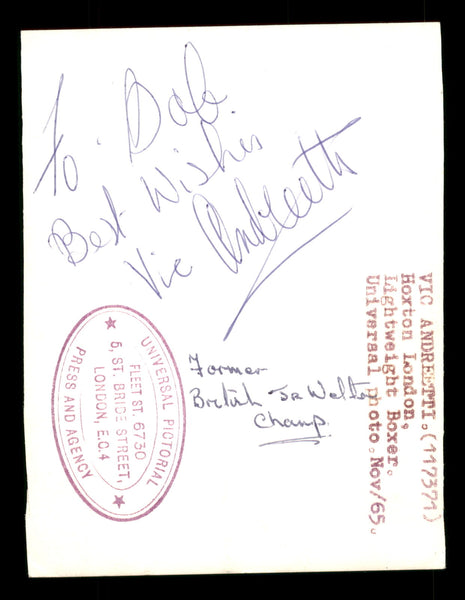 To Bob.
Best Wishes
Vic Andreetti
Former
British Jr Welter
Champ.
UNIVERSAL PICTORIAL
FLEET ST. 6730
5, ST. BRIDE STREET,
LONDON, E.C.4
PRESS AND AGENCY
VIC ANDREETTI.(117371)
Hoxton London,
Lightweight Boxer.
Universal photo.Nov/65.